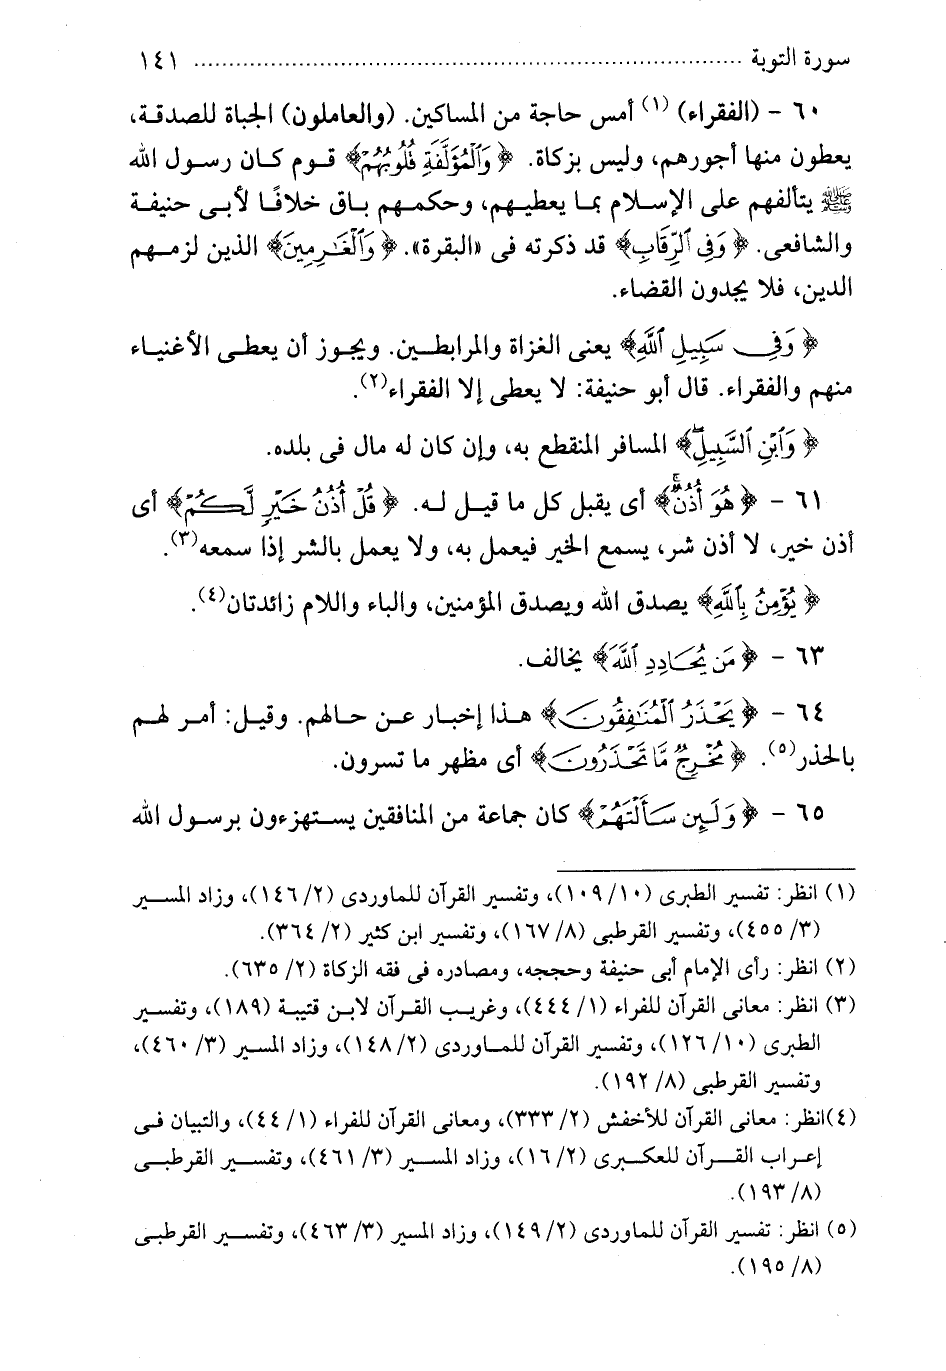 سورة التوبة ........................................................ ١٤١
٦٠ - (الفقراء) (١) أمس حاجة من المساكين. (والعاملون) الجباة للصدقة،
يعطون منها أجورهم، وليس بزكاة. ﴿وَالْمُؤَلَّفَةِ قُلُوبُهُمْ﴾ قوم كان رسول الله
ﷺ يتألفهم على الإسلام بما يعطيهم، وحكمهم باق خلافًا لأبى حنيفة
والشافعى. ﴿وَفِي الرِّقَابِ﴾ قد ذكرته فى «البقرة». ﴿وَالْغَارِمِينَ﴾ الذين لزمهم
الدين، فلا يجدون القضاء.
﴿وَفِي سَبِيلِ اللَّهِ﴾ يعنى الغزاة والمرابطين. ويجوز أن يعطى الأغنياء
منهم والفقراء. قال أبو حنيفة: لا يعطى إلا الفقراء(٢).
﴿وَابْنِ السَّبِيلِ﴾ المسافر المنقطع به، وإن كان له مال فى بلده.
٦١ - ﴿هُوَ أُذُنٌ﴾ أى يقبل كل ما قيل له. ﴿قُلْ أُذُنُ خَيْرٍ لَّكُمْ﴾ أى
أذن خير، لا أذن شر، يسمع الخير فيعمل به، ولا يعمل بالشر إذا سمعه(٣).
﴿يُؤْمِنُ بِاللَّهِ﴾ يصدق الله ويصدق المؤمنين، والباء واللام زائدتان(٤).
٦٣ - ﴿مَن يُحَادِدِ اللَّهَ﴾ يخالف.
٦٤ - ﴿يَحْذَرُ الْمُنَافِقُونَ﴾ هذا إخبار عن حالهم. وقيل: أمر لهم
بالحذر(٥). ﴿مُخْرِجٌ مَّا تَحْذَرُونَ﴾ أى مظهر ما تسرون.
٦٥ - ﴿وَلَئِن سَأَلْتَهُمْ﴾ كان جماعة من المنافقين يستهزءون برسول الله
(١) انظر: تفسير الطبرى (١٠/ ١٠٩)، وتفسير القرآن للماوردى (٢/ ١٤٦)، وزاد المسير
(٣/ ٤٥٥)، وتفسير القرطبى (٨/ ١٦٧)، وتفسير ابن كثير (٢/ ٣٦٤).
(٢) انظر: رأى الإمام أبى حنيفة وحججه، ومصادره فى فقه الزكاة (٢/ ٦٣٥).
(٣) انظر: معانى القرآن للفراء (١/ ٤٤٤)، وغريب القرآن لابن قتيبة (١٨٩)، وتفسير
الطبرى (١٠/ ١٢٦)، وتفسير القرآن للماوردى (٢/ ١٤٨)، وزاد المسير (٣/ ٤٦٠)،
وتفسير القرطبى (٨/ ١٩٢).
(٤)انظر: معانى القرآن للأخفش (٢/ ٣٣٣)، ومعانى القرآن للفراء (١/ ٤٤)، والتبيان فى
إعراب القرآن للعكبرى (٢/ ١٦)، وزاد المسير (٣/ ٤٦١)، وتفسير القرطبى
(٨/ ١٩٣).
(٥) انظر: تفسير القرآن للماوردى (٢/ ١٤٩)، وزاد المسير (٣/ ٤٦٣)، وتفسير القرطبى
(٨/ ١٩٥).